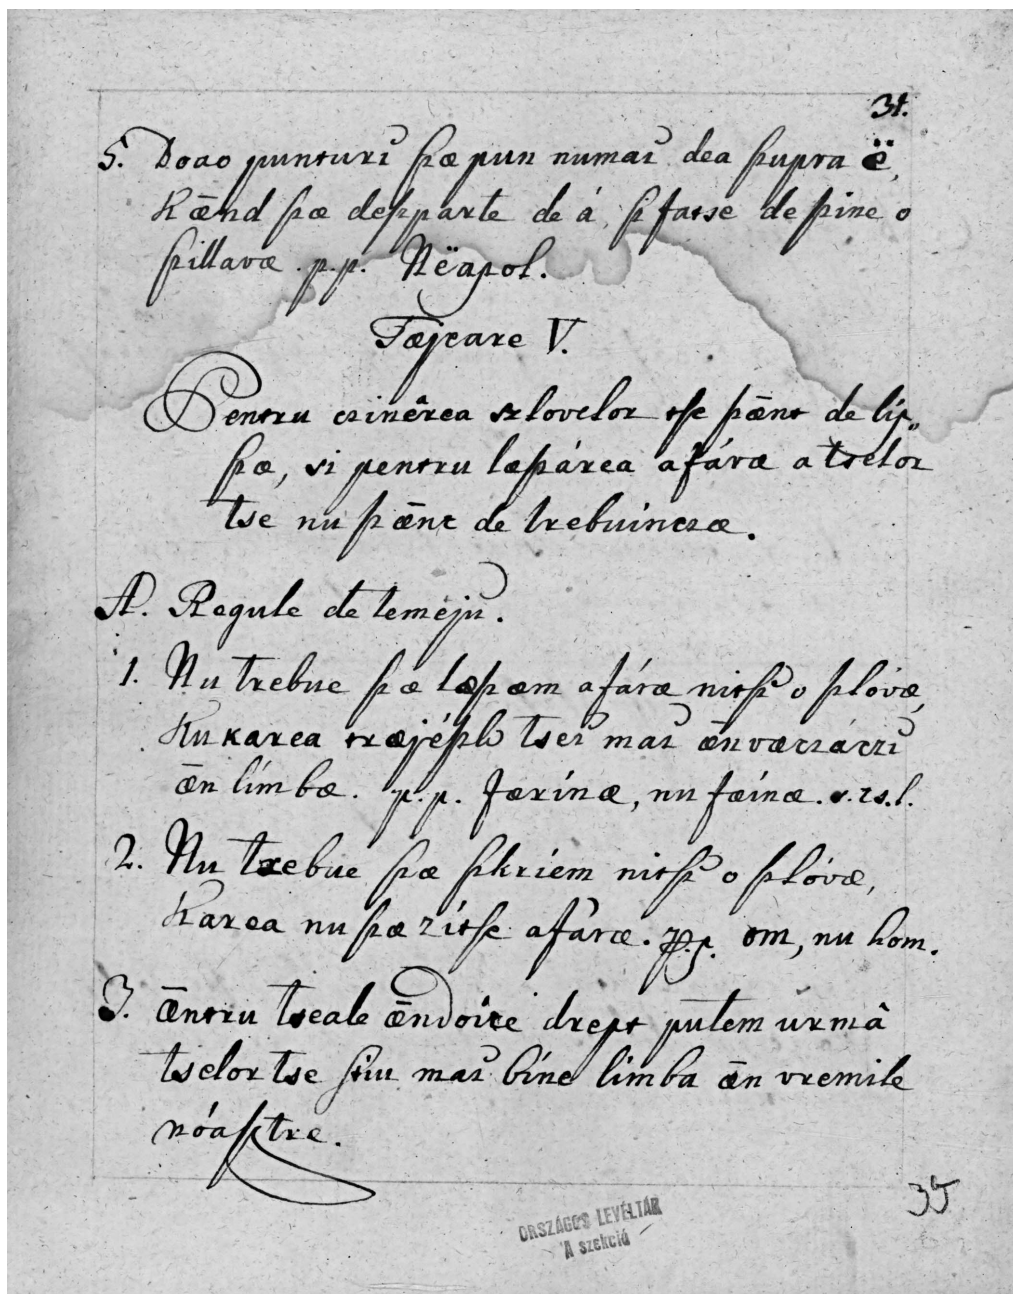 31.
5. Doao punturĭ þæ pun numaĭ dea þupra ë,
Kǣnd þæ deþparte de á, þfatse de þine o
þillavæ. p.p. Nëapol.
Tæjeare V.
Pentru czinêrea szlovelor tþe þǣnt de líp„
þæ, si pentru læþárea afáræ a tselor
tse nu þǣnt de trebuinczæ.
A. Regule de temejŭ.
1. Nu trebue þæ læþæm afáræ nitþĭ o þlóvæ,
Kukarea træjéþk tseĭ maĭ ǣnvæczáczĭ
ǣn límbæ. p.p. færínæ, nu fæinæ. s.ts.l.
2. Nu trebue þæ þkriem nitþĭ o þlóvæ,
Karea nu þæ zítþe afáræ. p.p. om, nu hom.
3. Ǣntru tseale ǣndoite drept putem urmâ
tselor tse þtiu maĭ bíne limba ǣn vremile
nóaþtre.
ORSZÁGOS LEVÉLTÁR
'A szekció
35